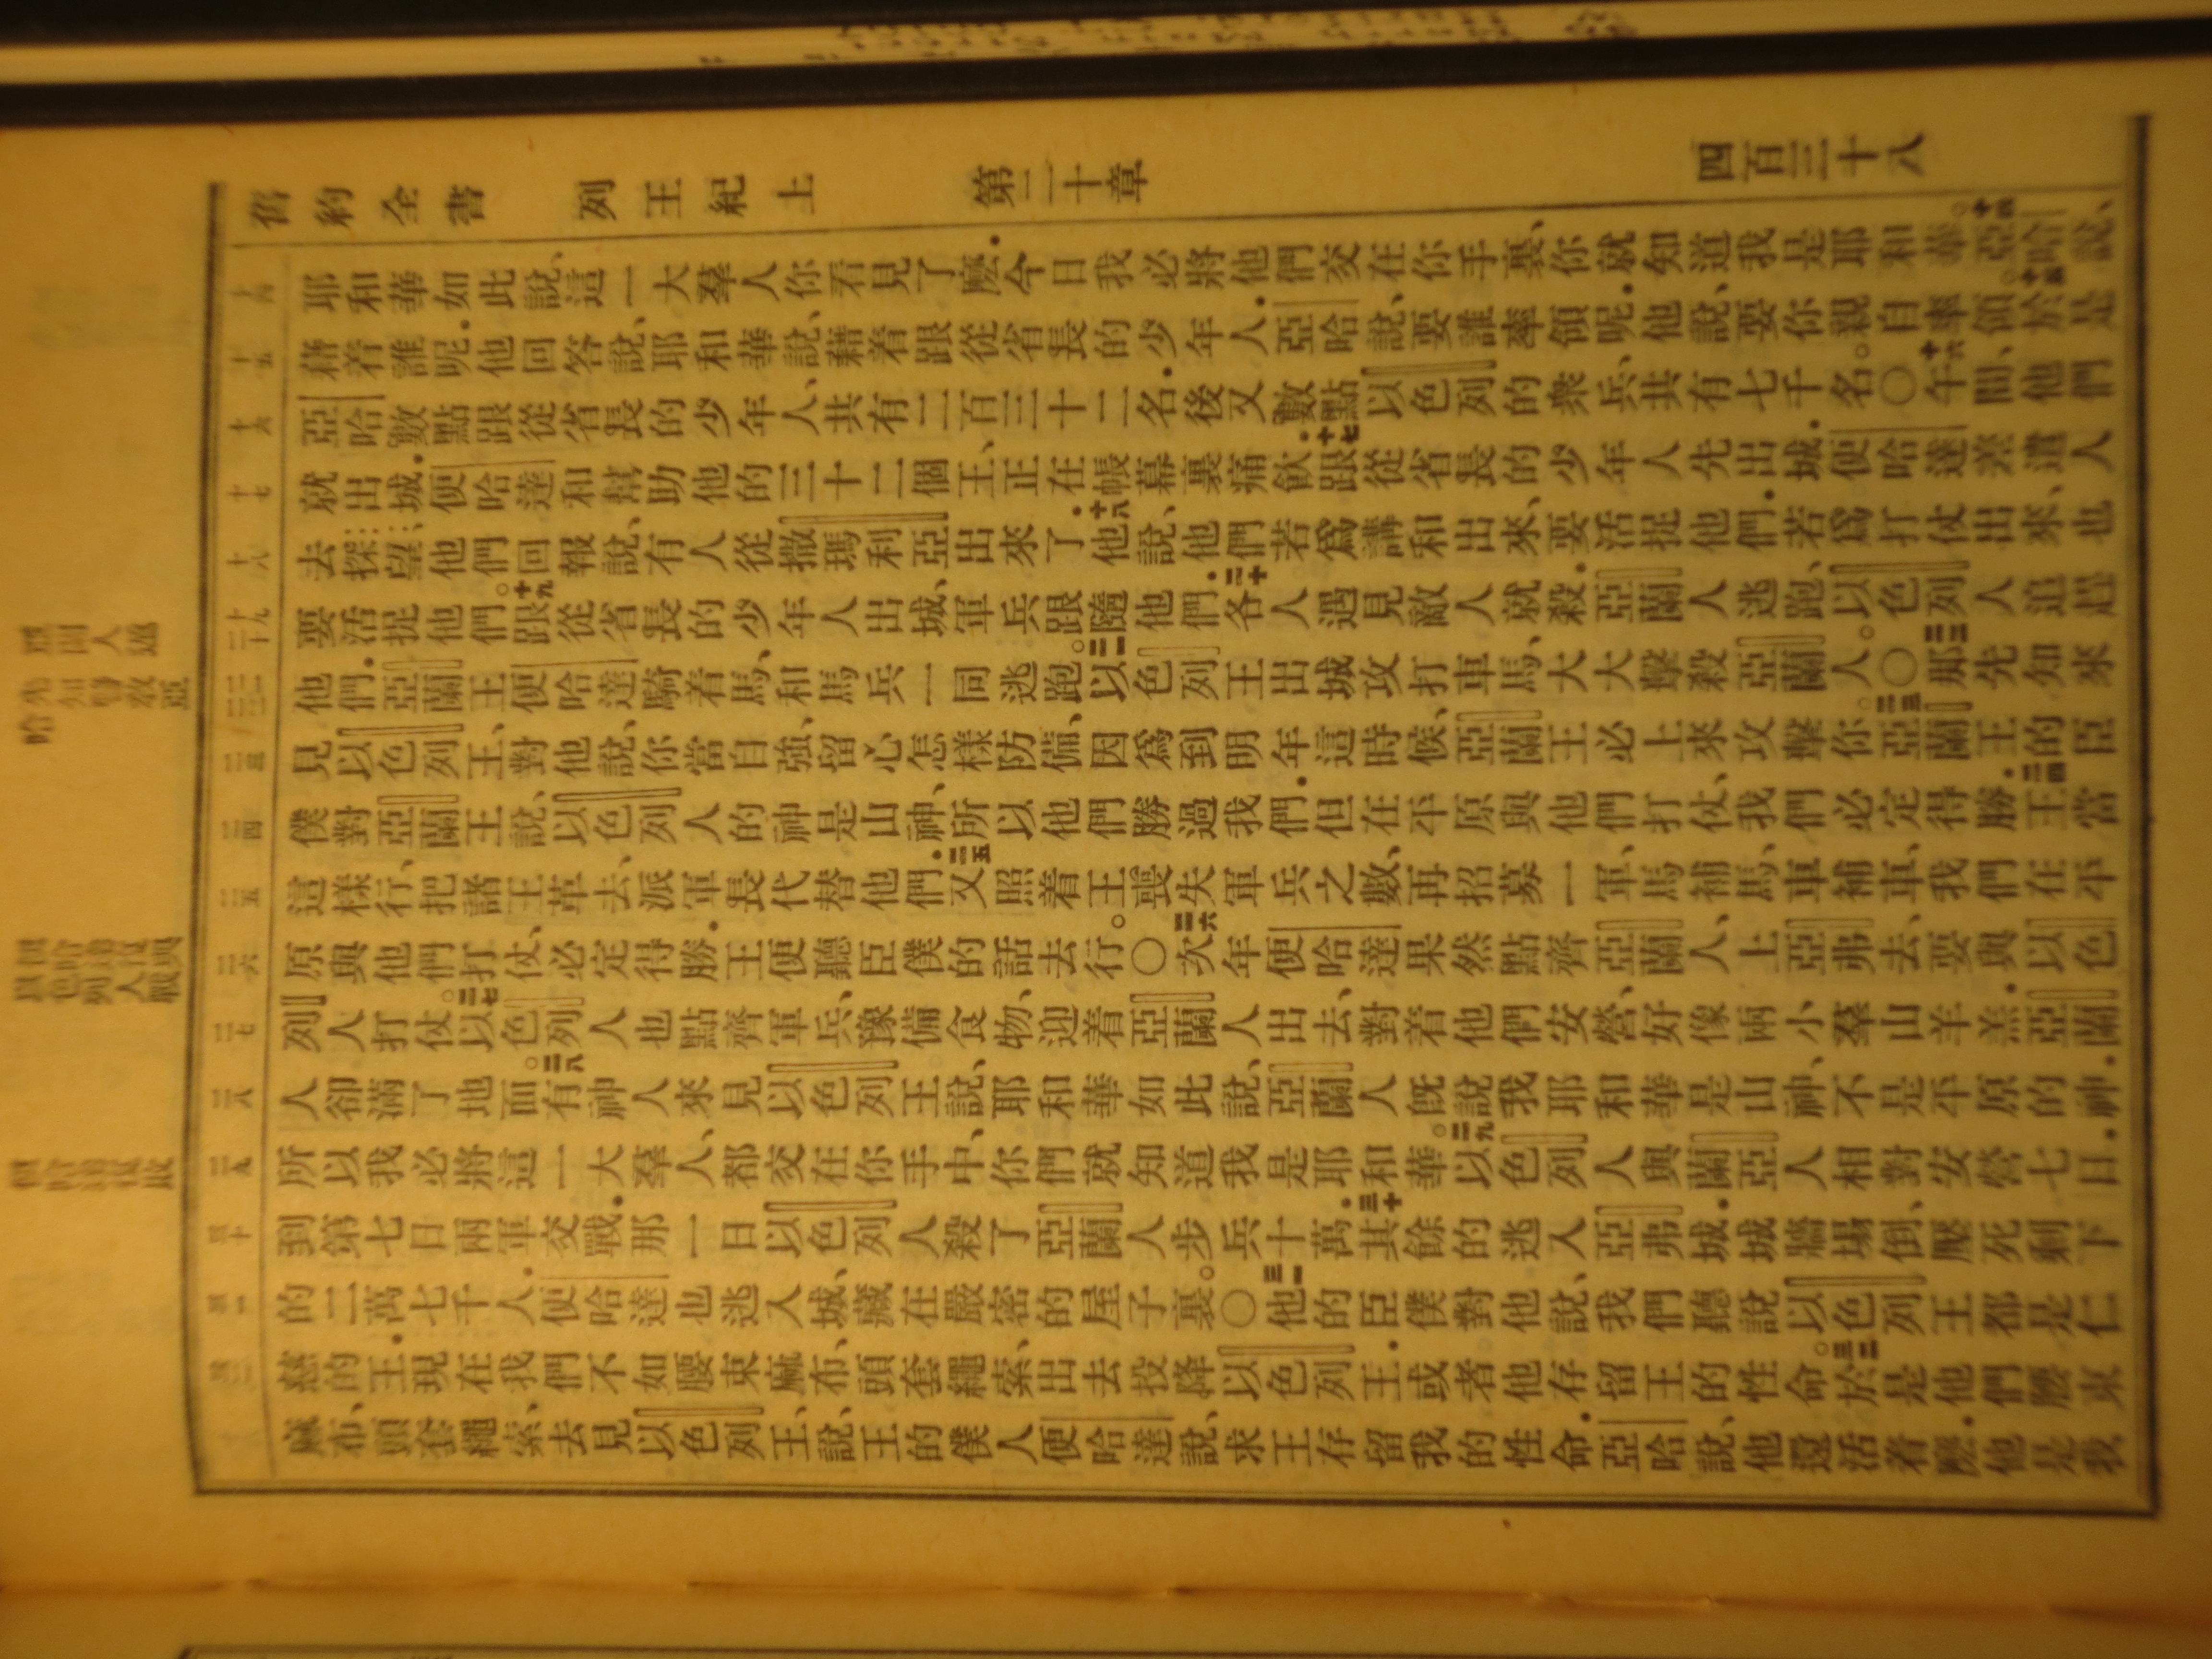 舊約全書 列王紀上 第二十章 四百三十八
耶和華如此說、這一大羣人你看見了麽.今日我必將他們交在你手裏、你就知道我是耶和華。亞哈說、
藉着誰呢.他回答說、耶和華說、藉着跟從省長的少年人.亞哈說、要誰率領呢.他說、要你親自率領。於是
亞哈數點跟從省長的少年人、共有二百三十二名.後又數點以色列的衆兵、共有七千名。〇十六午間、他們
就出城.便哈達和幫助他的三十二個王、正在帳幕裏痛飲.十七跟從省長的少年人先出城.便哈達差遣人
去探望、他們回報說、有人從撒瑪利亞出來了.十八他說、他們若爲講和出來、要活捉他們.若爲打仗出來、也
要活捉他們。十九跟從省長的少年人出城、軍兵跟隨他們.二十各人遇見敵人就殺.亞蘭人逃跑、以色列人追趕
他們.亞蘭王便哈達騎着馬、和馬兵一同逃跑。二一以色列王出城攻打車馬、大大擊殺亞蘭人。〇二二那先知來
見以色列王、對他說、你當自強、留心怎樣防備、因爲到明年這時候、亞蘭王必上來攻擊你。二三亞蘭王的臣
僕對亞蘭王說、以色列人的神是山神、所以他們勝過我們.但在平原與他們打仗、我們必定得勝.二四王當
這樣行、把諸王革去、派軍長代替他們.二五又照着王喪失軍兵之數、再招募一軍、馬補馬、車補車、我們在平
原與他們打仗、必定得勝.王便聽臣僕的話去行。〇二六次年便哈達果然點齊亞蘭人、上亞弗去、要與以色
列人打仗。二七以色列人也點齊軍兵、豫備食物、迎着亞蘭人出去、對着他們安營、好像兩小羣山羊羔.亞蘭
人卻滿了地面。二八有神人來見以色列王說、耶和華如此說、亞蘭人既說我耶和華是山神、不是平原的神.
所以我必將這一大羣人、都交在你手中、你們就知道我是耶和華。二九以色列人與蘭亞人相對安營七日.
到第七日兩軍交戰.那一日以色列人殺了亞蘭人步兵十萬.三十其餘的逃入亞弗城.城牆塌倒、壓死剩下
的二萬七千人.便哈達也逃入城、藏在嚴密的屋子裏。〇三一他的臣僕對他說、我們聽說以色列王都是仁
慈的王.現在我們不如腰束麻布、頭套繩索、出去投降以色列王.或者他存留王的性命。三二於是他們腰束
麻布、頭套繩索、去見以色列王、說、王的僕人便哈達說、求王存留我的性命.亞哈說、他還活着麽.他是我